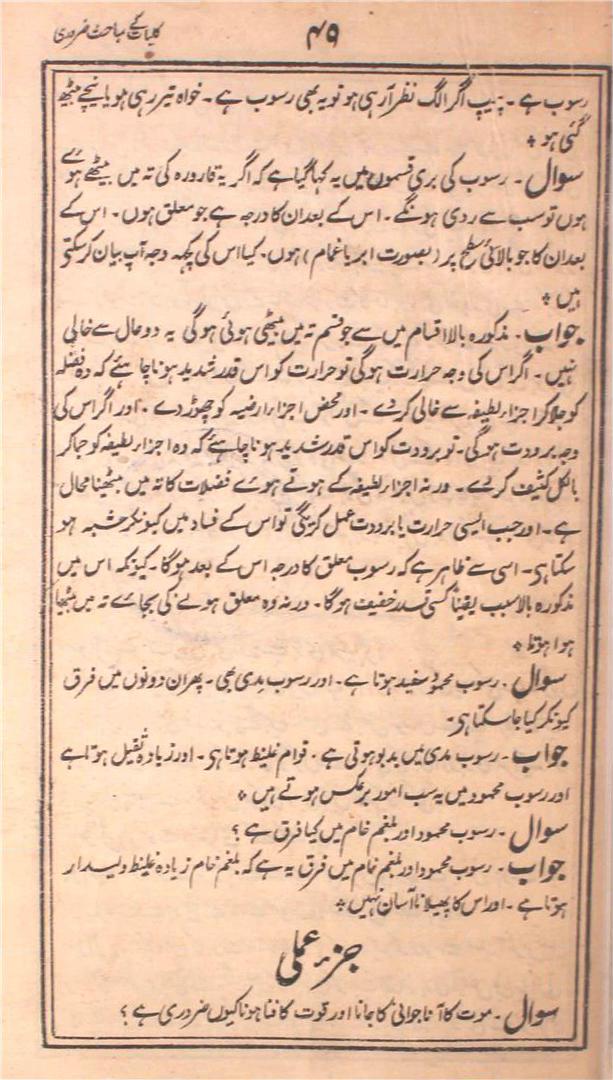 ۴۹
کلیات کے مباحث ضروری
رسوب ہے ۔ پیپ اگر الگ نظر آرہی ہو تو یہ بھی رسوب ہے ۔ خواہ تیر رہی ہو یا نیچے بیٹھ
گئی ہو ٭
سوال ۔ رسوب کی بری قسموں میں یہ کہا گیا ہے کہ اگر یہ قارورہ کی تہ میں بیٹھے ہوے
ہوں تو سب سے ردی ہونگے ۔ اس کے بعد ان کا درجہ ہے جو معلق ہوں ۔ اس کے
بعد ان کا جو بالائی سطح پر (بصورت ابر یا غمام) ہوں ۔ کیا اس کی کچہ وجہ آپ بیان کرسکتے
ہیں ٭
جواب ۔ مذکورہ بالا اقسام میں سے جو قسم تہ میں بیٹھی ہوئی ہوگی یہ دو حال سے خالی
نہیں ۔ اگر اس کی وجہ حرارت ہوگی تو حرارت کو اس قدر شدید ہونا چاہئے کہ وہ فضلہ
کو جلاکر اجزاء لطیفہ سے خالی کردے ۔ اور محض اجزاء ارضیہ کو چھوڑ دے ۔ اور اگر اس کی
وجہ برودت ہوگی ۔ تو برودت کو اس قدر شدید ہونا چاہئے کہ وہ اجزاء لطیفہ کو جماکر
بالکل کثیف کردے ۔ ورنہ اجزاء لطیفہ کے ہوتے ہوے فضلات کا تہ میں بیٹھنا محال
ہے ۔ اور جب ایسی حرارت یا برودت عمل کریگی تو اس کے فساد میں کیونکر شبہ ہو
سکتا ہی ۔ اسی سے ظاہر ہے کہ رسوب معلق کا درجہ اس کے بعد ہوگا ۔ کیونکہ اس میں
مذکورہ بالا سبب یقیناً کسی قدر خفیف ہوگا ۔ ورنہ وہ معلق ہونے کی بجاے تہ میں بیٹھا
ہوا ہوتا ٭
سوال ۔ رسوب محمود سفید ہوتا ہے ۔ اور رسوب مدی بھی ۔ پھر ان دونوں میں فرق
کیونکر کیا جاسکتا ہی ۔
جواب ۔ رسوب مدی میں بدبو ہوتی ہے ۔ قوام غلیظ ہوتا ہی ۔ اور زیادہ ثقیل ہوتا ہے
اور رسوب محمود میں یہ سب امور برعکس ہوتے ہیں ٭
سوال ۔ رسوب محمود اور بلغم خام میں کیا فرق ہے ؟
جواب ۔ رسوب محمود اور بلغم خام میں فرق یہ ہے کہ بلغم خام زیادہ غلیظ و لیسدار
ہوتا ہے ۔ اور اس کا پھیلانا آسان نہیں ٭
جزء عملی
سوال ۔ موت کا آنا جوانی کا جانا اور قوت کا فنا ہونا کیوں ضروری ہے ؟